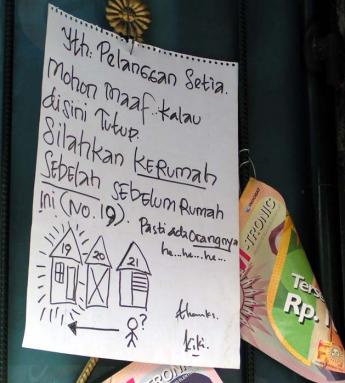 Yth: Pelanggan Setia.
Mohon maaf.. kalau
disini Tutup.
Silahkan KERUMAH
SEBELAH SEBELUM RUMAH
INI (NO. 19). Pasti ada orangnya
he... he... he...
19 20 21
?
thanks.
kiki.
TRONIC
Terse
Rp.
TRONIC